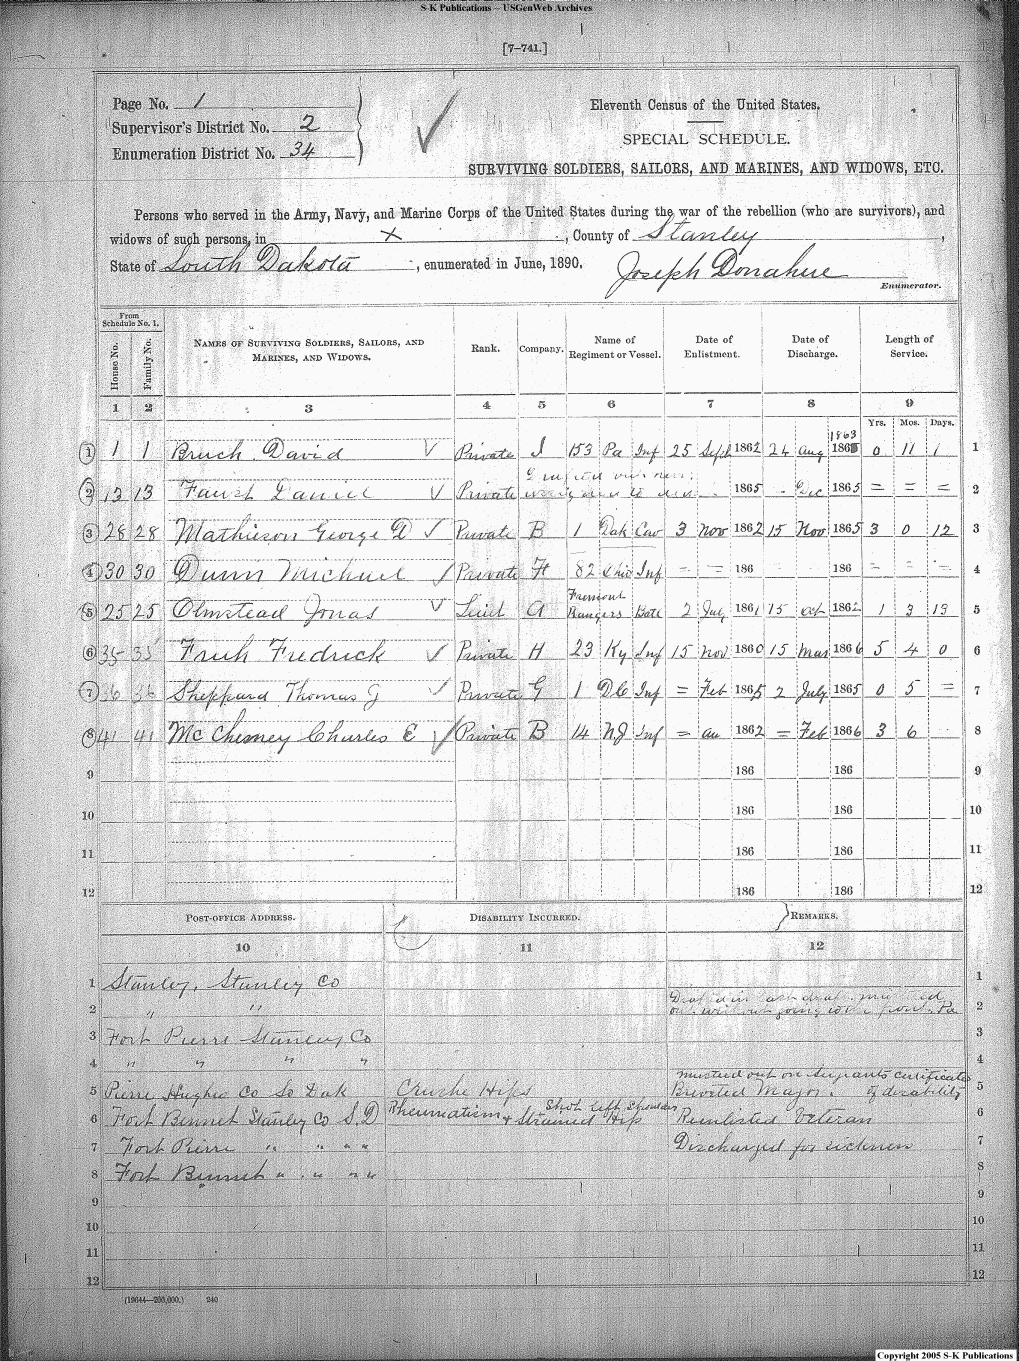 S-K Publications – USGenWeb Archives
[7-741.]
Page No. 1
Supervisor's District No. 2
Enumeration District No. 34
Eleventh Census of the United States.
SPECIAL SCHEDULE.
SURVIVING SOLDIERS, SAILORS, AND MARINES, AND WIDOWS, ETC.
Persons who served in the Army, Navy, and Marine Corps of the United States during the war of the rebellion (who are survivors), and
widows of such persons, in x, County of Stanley,
State of South Dakota, enumerated in June, 1890. Joseph Donahue
Enumerator.
From Schedule No. 1.
House No. Family No. Names of Surviving Soldiers, Sailors, and Marines, and Widows. Rank. Company. Name of Regiment or Vessel. Date of Enlistment. Date of Discharge. Length of Service.
1 2 3 4 5 6 7 8 9
Yrs. Mos. Days.
1 1 1 Bruch David Private I 153 Pa Inf 25 Sept 1862 24 Aug 1863 0 11 1 1
2 13 13 Faust Daniel Private 1865 Dec 1865 = = = 2
3 28 28 Mathieson George D Private B 1 Dak Cav 3 Nov 1862 15 Nov 1865 3 0 12 3
4 30 30 Dunn Michael Private H 82 Ohio Inf = = 186 186 = = = 4
Fremont
5 25 25 Olmstead Jonas Lieut A Rangers Batt 2 July 1861 15 Oct 1862 1 3 13 5
6 35 35 Fruh Fredrick Private H 23 Ky Inf 15 Nov 1860 15 Mar 1866 5 4 0 6
7 36 36 Sheppard Thomas G Private G 1 DC Inf = Feb 1865 2 July 1865 0 5 = 7
8 41 41 McChesney Charles E Private B 14 NJ Inf = au 1862 = Feb 1866 3 6 8
9 186 186 9
10 186 186 10
11 186 186 11
12 186 186 12
Post-office Address. Disability Incurred. Remarks.
10 11 12
1 Stanley, Stanley Co 1
2 " " 2
3 Fort Pierre Stanley Co 3
4 " " " " 4
mustered out on Surgeants certificate
5 Pierre Hughes Co So Dak Crushe Hips Brevited Major. of disability 5
Shot left Shoulder
6 Fort Bennet Stanley Co S.D Rheumatism & Strained Hip Reenlisted Veteran 6
7 Fort Pierre " " " " Discharged for sickness 7
8 Fort Bennet " " " " 8
9 9
10 10
11 11
12 12
(19644—200,000.) 240
Copyright 2005 S-K Publications